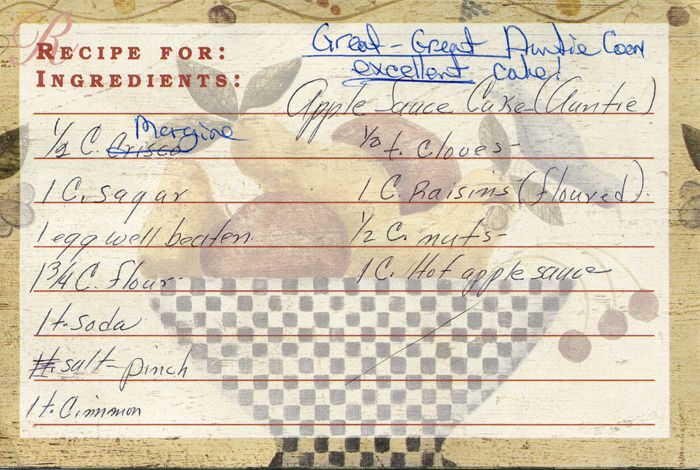 R
RECIPE FOR:
Great-Great Auntie Coon
excellent cake!
INGREDIENTS:
Apple Sauce Cake (Auntie)
Margine
1/2 C. Crisco
1 C. sugar
1 egg well beaten
1 3/4 C. flour
1 t. soda
#. salt- pinch
1 t. Cinnmon
1/2 t. Cloves-
1 C. Raisins (floured).
1/2 C. nuts-
1 C. Hot apple sauce